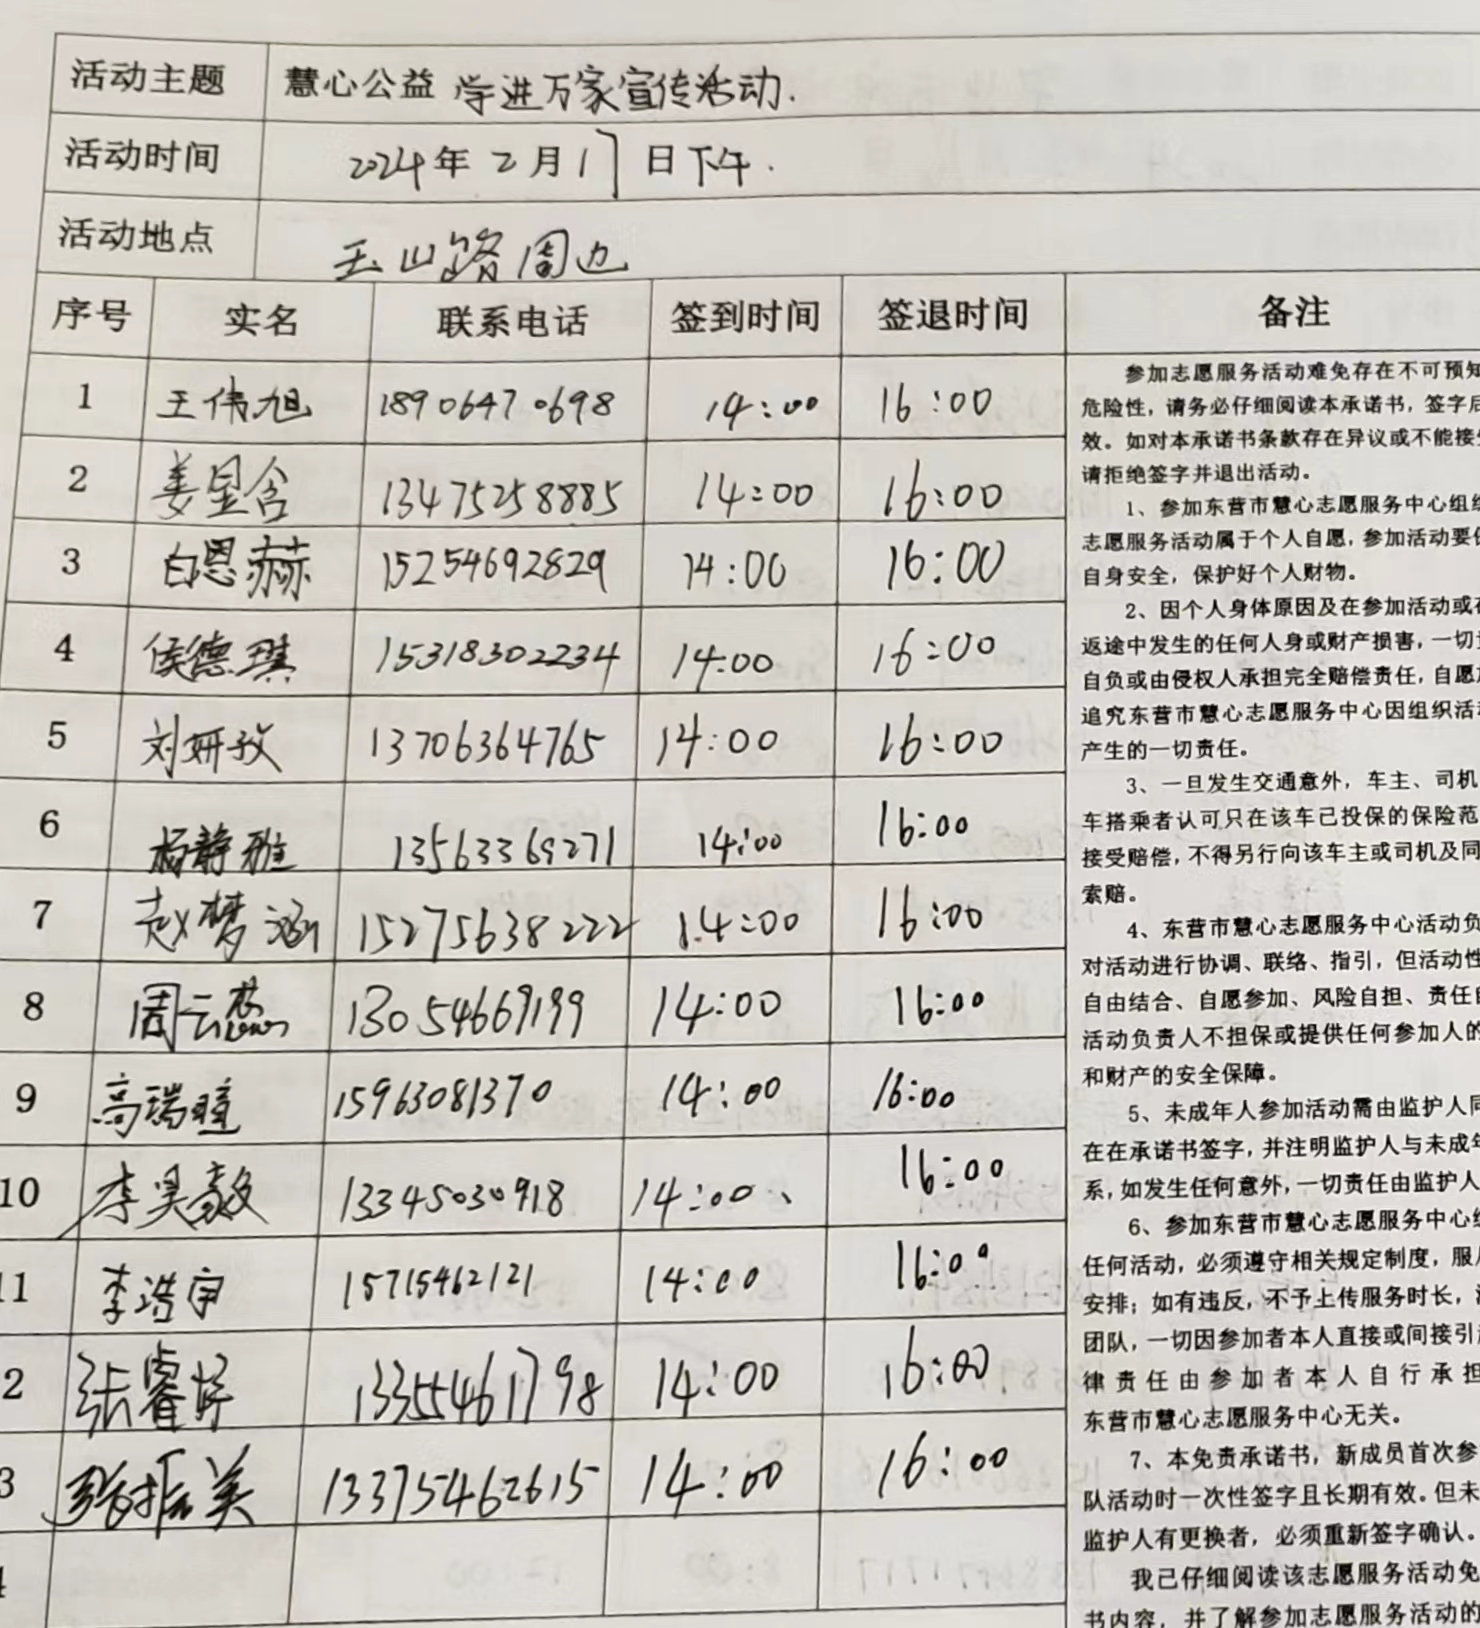 活动主题 慧心公益 学进万家宣传活动.
活动时间 2024年2月17日下午.
活动地点 玉山路周边
序号 实名 联系电话 签到时间 签退时间 备注
1 王伟旭 18906470698 14:00 16:00
2 姜昱含 13475258885 14:00 16:00
3 白恩赫 15254692829 14:00 16:00
4 侯德琪 15318302234 14:00 16:00
5 刘妍孜 13706364765 14:00 16:00
6 杨静雅 13563369271 14:00 16:00
7 赵梦涵 15275638222 14:00 16:00
8 周云慧 13054669199 14:00 16:00
9 高瑞瞳 15963081370 14:00 16:00
10 李昊毅 13345030918 14:00、 16:00
11 李浩宇 15715462121 14:00 16:00
2 张睿婷 13355461798 14:00 16:00
3 张振美 13375462615 14:00 16:00
参加志愿服务活动难免存在不可预知
危险性，请务必仔细阅读本承诺书，签字后
效。如对本承诺书条款存在异议或不能接受
请拒绝签字并退出活动。
1、参加东营市慧心志愿服务中心组织
志愿服务活动属于个人自愿，参加活动要保
自身安全，保护好个人财物。
2、因个人身体原因及在参加活动或在
返途中发生的任何人身或财产损害，一切责
自负或由侵权人承担完全赔偿责任，自愿放
追究东营市慧心志愿服务中心因组织活动
产生的一切责任。
3、一旦发生交通意外，车主、司机
车搭乘者认可只在该车已投保的保险范
接受赔偿，不得另行向该车主或司机及同
索赔。
4、东营市慧心志愿服务中心活动负
对活动进行协调、联络、指引，但活动性
自由结合、自愿参加、风险自担、责任自
活动负责人不担保或提供任何参加人的
和财产的安全保障。
5、未成年人参加活动需由监护人同
在在承诺书签字，并注明监护人与未成年
系，如发生任何意外，一切责任由监护人
6、参加东营市慧心志愿服务中心组
任何活动，必须遵守相关规定制度，服从
安排；如有违反，不予上传服务时长，
团队，一切因参加者本人直接或间接引起
律责任由参加者本人自行承担
东营市慧心志愿服务中心无关。
7、本免责承诺书，新成员首次参
队活动时一次性签字且长期有效。但未
监护人有更换者，必须重新签字确认。
我已仔细阅读该志愿服务活动免
书内容，并了解参加志愿服务活动的